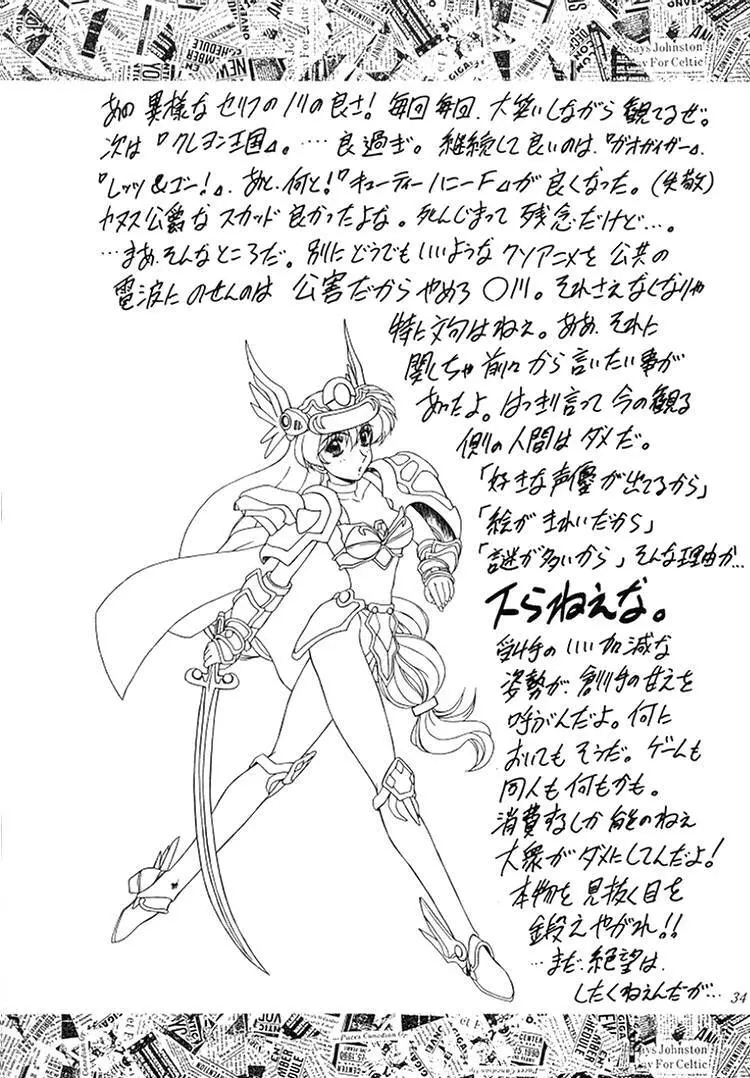 Says Johnston
For Celtic
あの異様なセリフのノリの良さ!毎回毎回、大笑いしながら観てるぜ。
次は『クレヨン王国』。…良過ぎ。継続して良いのは、『ガオガイガー』、
『レッツ&ゴー!』、あと、何と!『キューティーハニーF』が良くなった。(失敬)
カヌス公爵なスカッド良かったよな。死んじまって残念だけど…。
…まあ、そんなところだ。別にどうでもいいようなクソアニメを公共の
電波にのせんのは公害だからやめろ〇川。それさえなくなりゃ
特に文句はねえ。ああ、それに
関しちゃ前々から言いたい事が
あったよ。はっきり言って今の観る
側の人間はダメだ。
「好きな声優が出てるから」
「絵がきれいだから」
「謎が多いから」そんな理由か…
下らねえな。
受け手のいい加減な
姿勢が、創り手の甘えを
呼がんだよ。何に
おいてもそうだ。ゲームも
同人も何もかも。
消費するしか能のねえ
大衆がダメにしてんだよ!
本物を見抜く目を
鍛えやがれ!!
…まだ、絶望は
したくねえんだが…
34
Says Johnston
For Celtic